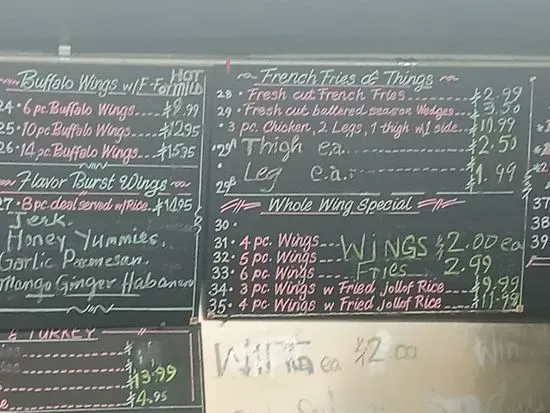 Buffalo Wings w/F-F
HOT
or MILD
24 · 6 pc. Buffalo Wings $8.99
25 · 10 pc Buffalo Wings $12.95
26 · 14 pc Buffalo Wings $15.75
Flavor Burst Wings
27 · 8 pc. deal served w/Rice $14.95
Jerk.
Honey Yummies.
Garlic Parmesan.
Mango Ginger Habanero
TURKEY
$13.99
$4.95
French Fries & Things
28 · Fresh cut French Fries $2.99
29 · Fresh cut battered season Wedges $3.50
· 3 pc Chicken, 2 Legs, 1 thigh w/1 side $11.99
29A Thigh ea. $2.50
29B Leg e.a. $1.99
Whole Wing Special
30 ·
31 · 4 pc. Wings WiNGS $2.00 ea
32 · 5 pc. Wings
33 · 6 pc. Wings Fries 2.99
34 · 3 pc Wings w Fried jollof Rice $9.99
35 · 4 pc Wings w Fried Jollof Rice $11.99
37
38
39
ea $2.00
Win